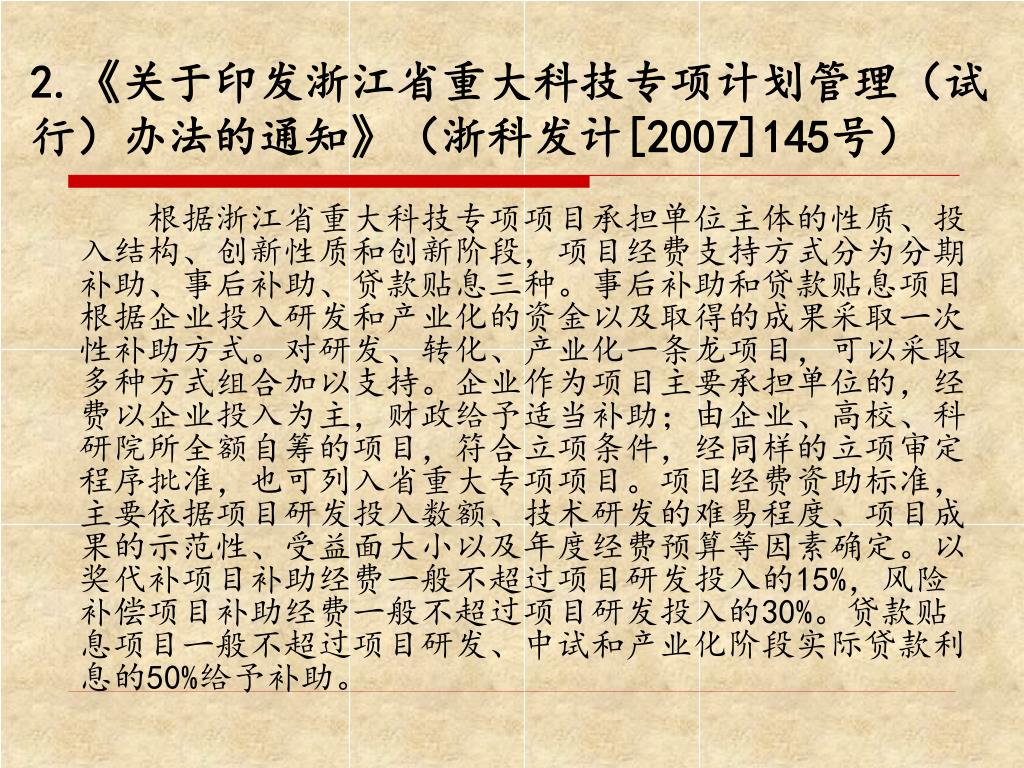 2.《关于印发浙江省重大科技专项计划管理（试
行）办法的通知》（浙科发计[2007]145号）
根据浙江省重大科技专项项目承担单位主体的性质、投
入结构、创新性质和创新阶段，项目经费支持方式分为分期
补助、事后补助、贷款贴息三种。事后补助和贷款贴息项目
根据企业投入研发和产业化的资金以及取得的成果采取一次
性补助方式。对研发、转化、产业化一条龙项目，可以采取
多种方式组合加以支持。企业作为项目主要承担单位的，经
费以企业投入为主，财政给予适当补助；由企业、高校、科
研院所全额自筹的项目，符合立项条件，经同样的立项审定
程序批准，也可列入省重大专项项目。项目经费资助标准，
主要依据项目研发投入数额、技术研发的难易程度、项目成
果的示范性、受益面大小以及年度经费预算等因素确定。以
奖代补项目补助经费一般不超过项目研发投入的15%，风险
补偿项目补助经费一般不超过项目研发投入的30%。贷款贴
息项目一般不超过项目研发、中试和产业化阶段实际贷款利
息的50%给予补助。